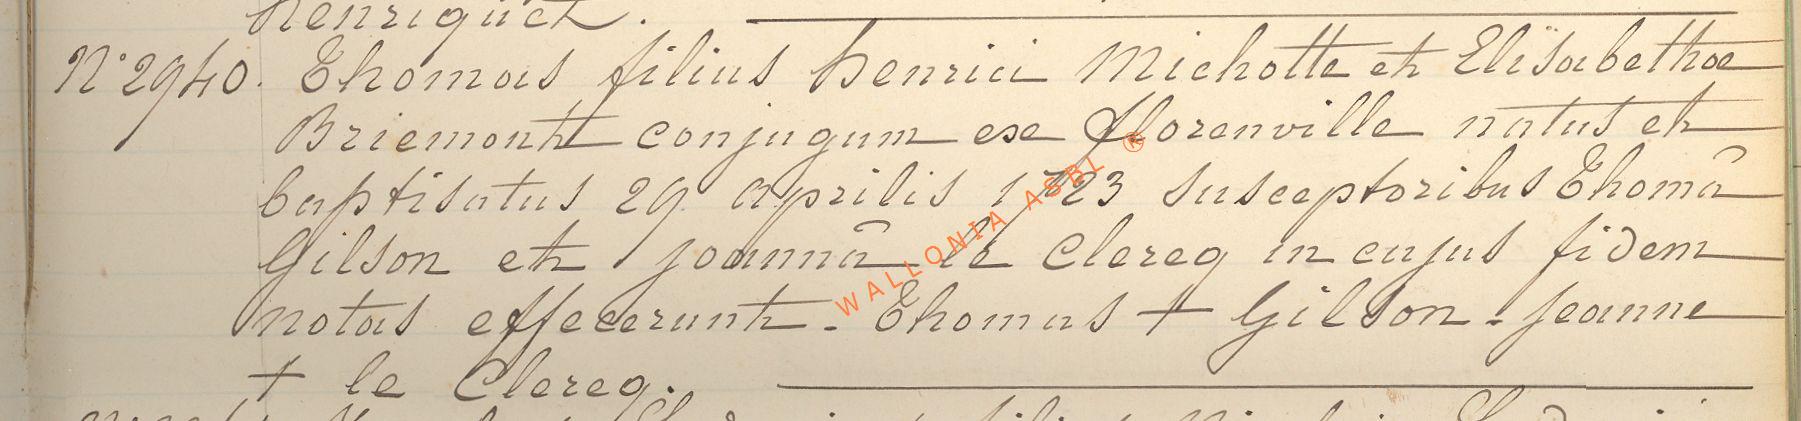 henriquet.
N° 2940. Thomas filius henrici Michotte et Elisabethae
Briemont conjugum ex florenville natus et
baptisatus 29 aprilis 1723 susceptoribus Thomâ
Gilson et joannâ le Clercq in cujus fidem
notas effecerunt. Thomas + Gilson - jeanne
+ le Clercq.
WALLONIA ASBL ®